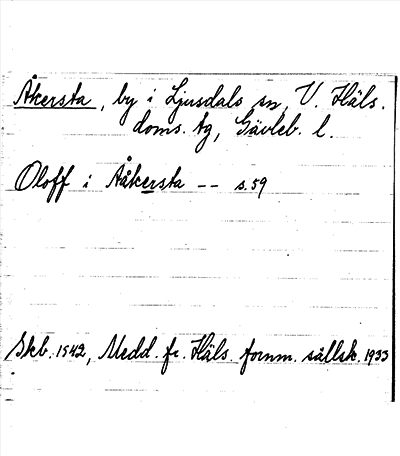 Åkersta, by i Ljusdals sn, V. Häls.
doms. tg, Gävleb. l.
Oloff i Aåkersta -- s. 59
Skb. 1542, Medd. fr. Häls. fornm. sällsk. 1933